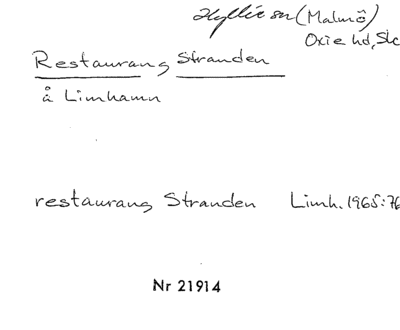 Hyllie sn (Malmö)
Oxie hd, Sk
Restaurang Stranden
å Limhamn
restaurang Stranden Limh. 1965:76
Nr 21914